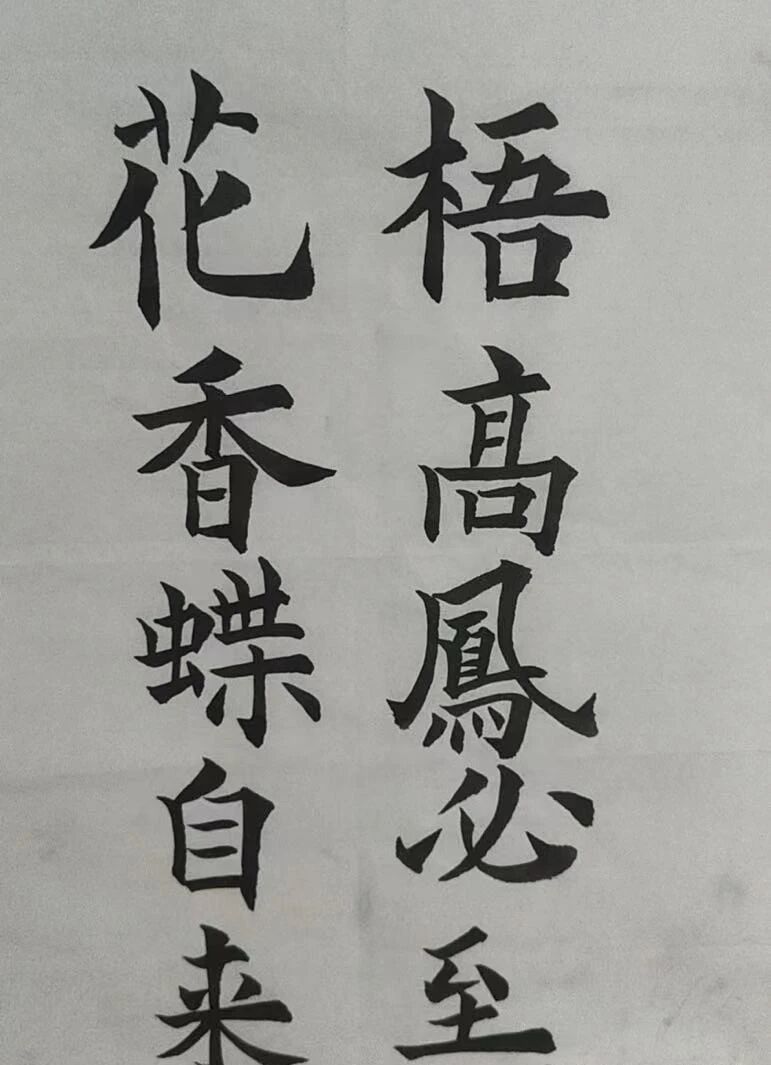 梧髙鳳必至
花香蝶自来